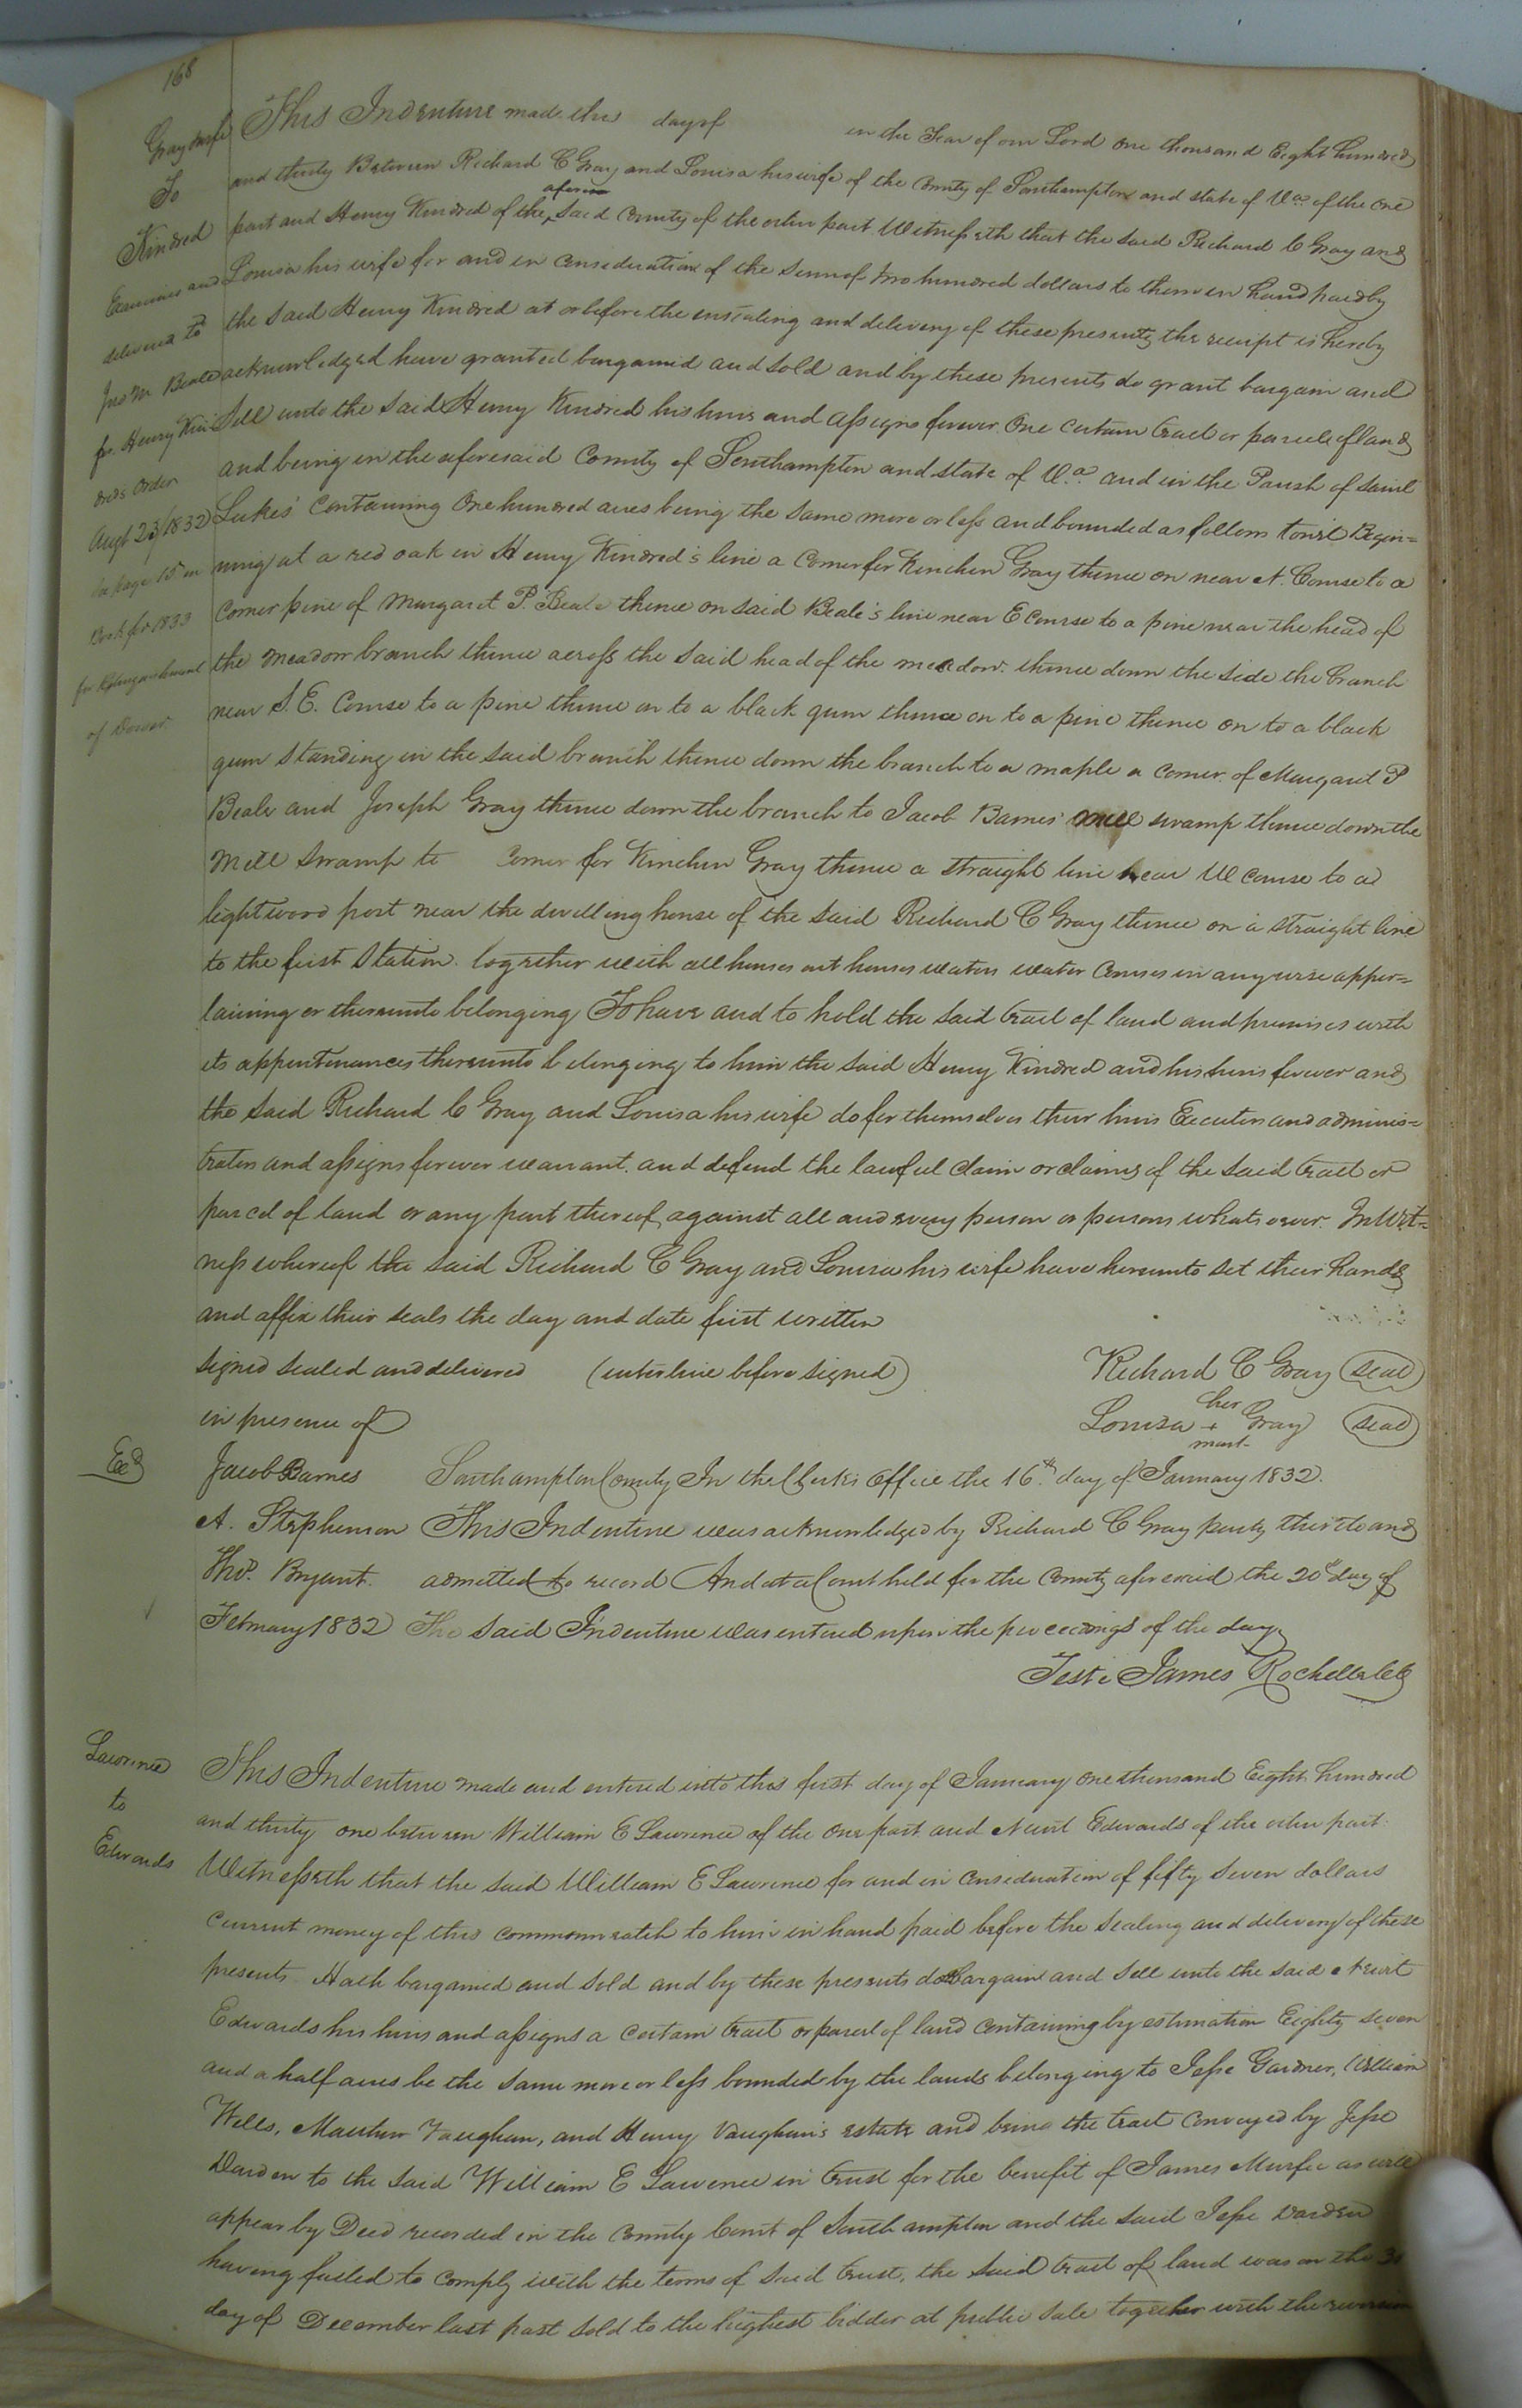 168
Gray & wife
To
Kindred
Examined and
delivered to
Jno M Beale
pr. Henry Kin
dred's Order
Augt 23/1832
See page 15 in
Book for 1833
for Relinquishment
of Dower
This Indenture made this day of in the Year of our Lord One thousand Eight hundred
and thirty Between Richard C Gray and Louisa his wife of the County of Southampton and state of Va. of the one
part and Henry Kindred of the afore Said County of the other part Witnesseth that the said Richard C Gray and
Louisa his wife for and in Consideration of the Sum of Two hundred dollars to them in hand paid by
the said Henry Kindred at or before the ensealing and delivery of these presents, the receipt is hereby
acknowledged have granted bargained and sold and by these presents do grant bargain and
Sell unto the said Henry Kindred his heirs and assigns forever One certain tract or parcel of land
and being in the aforesaid County of Southampton and state of Va. and in the Parish of Saint
Lukes' Containing One hundred acres being the same more or less and bounded as follows towit Begin=
ning at a red oak in Henry Kindred's line a Corner for Kinchen Gray thence on near N. Course to a
Corner pine of Margaret P. Beale thence on said Beale's line near E Course to a pine near the head of
the meadow branch thence across the said head of the meadow thence down the side the branch
near S.E. Course to a pine thence on to a black gum thence on to a pine thence on to a black
gum standing in the said branch thence down the branch to a maple a Corner of Margaret P
Beale and Joseph Gray thence down the branch to Jacob Barnes' mill swamp thence down the
Mill swamp to Corner for Kinchen Gray thence a straight line near W course to a
lightwood post near the dwelling house of the said Richard C Gray thence on a straight line
to the first station. together with all houses out houses waters water Courses in any wise apper=
taining or thereunto belonging To have and to hold the said tract of land and premises with
its appurtenances thereunto belonging to him the said Henry Kindred and his heirs forever and
the said Richard C Gray and Louisa his wife do for themselves their heirs Executors and adminis=
trators and assigns forever warrant and defend the lawful claim or claims of the said tract or
parcel of land or any part thereof against all and every person or persons whatsoever. In Wit=
ness whereof the said Richard C Gray and Louisa his wife have hereunto set their hands
and affix their seals the day and date first written
signed sealed and delivered (interline before signed) Richard C Gray (seal)
in presence of Louisa her + mark Gray (seal)
Exd Jacob Barnes Southampton County In the Clerk's Office the 16th day of January 1832.
A. Stephenson This Indenture was acknowledged by Richard C Gray party thereto and
Thos. Bryant. admitted to record And at a Court held for the County aforesaid the 20th day of
February 1832 The said Indenture was entered upon the proceedings of the day
Teste James Rochelle CC
Lawrence
to
Edwards
This Indenture made and entered into this first day of January one thousand Eight hundred
and thirty one between William E Lawrence of the One part and Newit Edwards of the other part.
Witnesseth that the said William E Lawrence for and in Consideration of fifty seven dollars
Current money of this commonwealth to him in hand paid before the sealing and delivery of these
presents. Hath bargained and sold and by these presents doth bargain and sell unto the said Newit
Edwards his heirs and assigns a certain tract or parcel of land Containing by estimation Eighty seven
and a half acres be the same more or less bounded by the lands belonging to Jesse Gardner, William
Wells, Matthew Vaughan, and Henry Vaughan's estate and being the tract Conveyed by Jesse
Darden to the said William E Lawrence in trust for the benefit of James Murfee as will
appear by Deed recorded in the County Court of Southampton and the said Jesse Darden
having failed to comply with the terms of said trust, the said tract of land was on the
day of December last past sold to the highest bidder at public sale together with the reversion